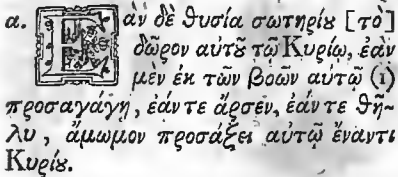 α. Ἐὰν δὲ θυσία σωτηρίȣ [τὸ]
δῶρον αὐτȣ͂ τῷ Κυρίῳ, ἐὰν
μὲν ἐκ τῶν βοῶν αὐτῷ (1)
προσαγάγῃ, ἐάν τε ἄρσεν, ἐάν τε θῆ-
λυ, ἄμωμον προσάξει αὐτῷ ἔναντι
Κυρίȣ.